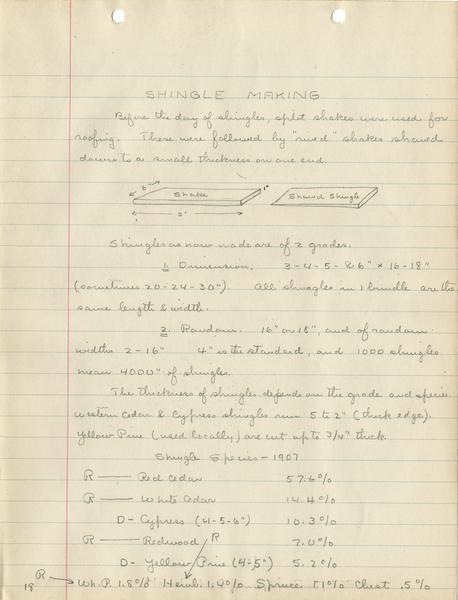 SHINGLE MAKING
Before the day of shingles, split shakes were used for
roofing. These were followed by "rived" shakes shaved
down to a small thickness on one end.
6" Shake 1" Shaved Shingle
2'
Shingles as now made are of 2 grades.
1. Dimension. 3-4-5-&6" x 16-18"
(sometimes 20-24-30"). All shingles in 1 bundle are the
same length & width.
2. Random. 16" or 18", and of random
widths 2-16" 4" is the standard, and 1000 shingles
mean 4000" of shingles.
The thickness of shingles depends on the grade and species
Western Cedar & Cypress shingles run 5 to 2" (thick edge).
Yellow Pine (used locally) are cut up to 3/4" thick.
Shingle Species - 1907
R — Red Cedar 57.6%
R — White Cedar 14.4%
D - Cypress (4-5-6") 10.3%
R — Redwood R 7.0%
D - Yellow Pine (4-5") 5.2%
R Wh. P. 1.8% Heml. 1.4% Spruce 1.1% Chest .5%
18